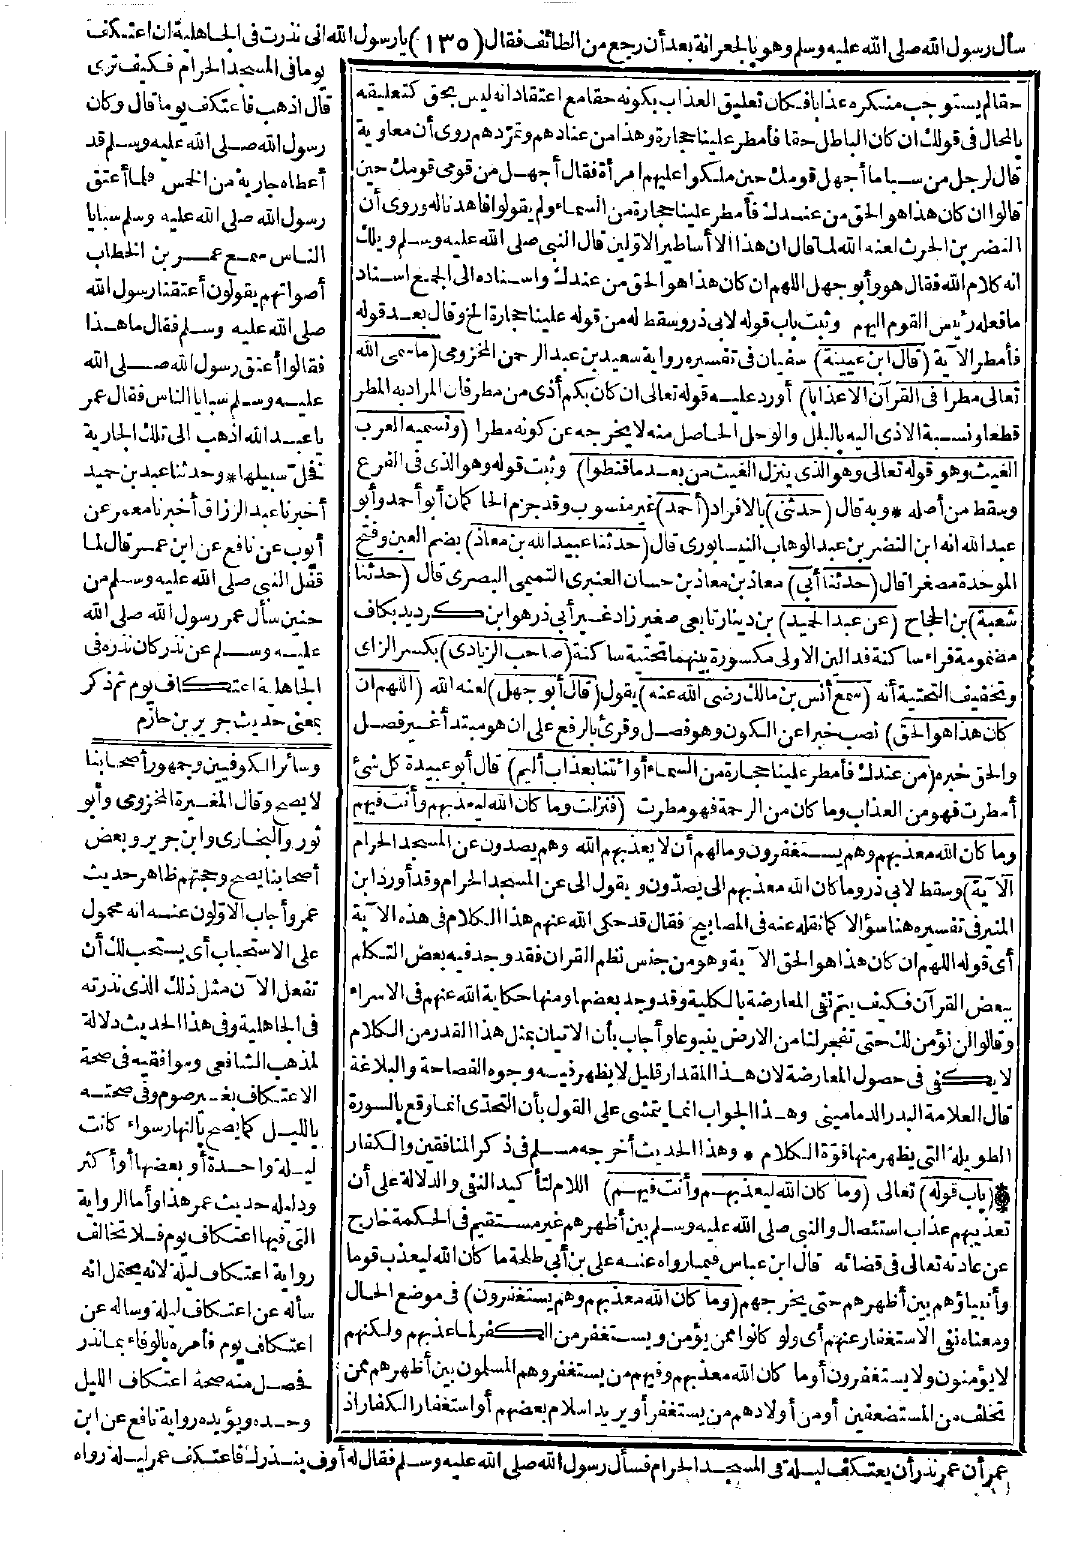 سأل رسول الله صلى الله عليه وسلم وهو بالجعرانة بعد أن رجع من الطائف فقال (١٣٥) يا رسول الله انى نذرت فى الجاهلية ان اعتكف
يوما فى المسجد الحرام فكيف ترى
قال اذهب فاعتكف يوما قال وكان
رسول الله صلى الله عليه وسلم قد
أعطاه جارية من الخمس فلما أعتق
رسول الله صلى الله عليه وسلم سبايا
الناس سمع عمر بن الخطاب
أصواتهم يقولون أعتقنا رسول الله
صلى الله عليه وسلم فقال ما هذا
فقالوا أعتق رسول الله صلى الله
عليه وسلم سبايا الناس فقال عمر
يا عبد الله اذهب الى تلك الجارية
فخل سبيلها * وحدثنا عبد بن حميد
أخبرنا عبد الرزاق أخبرنا معمر عن
أيوب عن نافع عن ابن عمر قال لما
قفل النبى صلى الله عليه وسلم من
حنين سأل عمر رسول الله صلى الله
عليه وسلم عن نذر كان نذره فى
الجاهلية اعتكاف يوم ثم ذكر
بمعنى حديث جرير بن حازم
وسائر الكوفيين وجمهور أصحابنا
لا يصح وقال المغيرة المخزومى وأبو
ثور والبخارى وابن جرير وبعض
أصحابنا يصح وحجتهم ظاهر حديث
عمر وأجاب الاولون عنه انه محمول
على الاستحباب أى يستحب لك أن
تفعل الآن مثل ذلك الذى نذرته
فى الجاهلية وفى هذا الحديث دلالة
لمذهب الشافعى وموافقيه فى صحة
الاعتكاف بغير صوم وفى صحته
بالليل كما يصح بالنهار سواء كانت
ليلة واحدة أو بعضها أو أكثر
ودليله حديث عمر هذا وأما الرواية
التى فيها اعتكاف يوم فلا تخالف
رواية اعتكاف ليلة لانه يحتمل انه
سأله عن اعتكاف ليلة وسأله عن
اعتكاف يوم فأمره بالوفاء بما نذر
فحصل منه صحة اعتكاف الليل
وحده ويؤيده رواية نافع عن ابن
عمر أن عمر نذر أن يعتكف ليلة فى المسجد الحرام فسأل رسول الله صلى الله عليه وسلم فقال له أوف بنذرك فاعتكف عمر ليلة رواه
حقا لم يستوجب منكره عذابا فكان تعليق العذاب بكونه حقا مع اعتقاد انه ليس بحق كتعليقه
بالمحال فى قولك ان كان الباطل حقا فأمطر علينا حجارة وهذا من عنادهم وتمردهم روى أن معاوية
قال لرجل من سبا ما أجهل قومك حين ملكوا عليهم امرأة فقال أجهل من قومى قومك حين
قالوا ان كان هذا هو الحق من عندك فأمطر علينا حجارة من السماء ولم يقولوا فاهدنا له وروى أن
النضر بن الحرث لعنه الله لما قال ان هذا الا أساطير الاولين قال النبى صلى الله عليه وسلم ويلك
انه كلام الله فقال هو وأبو جهل اللهم ان كان هذا هو الحق من عندك واسناده الى الجمع اسناد
ما فعله رئيس القوم اليهم وثبت باب قوله لابى ذر وسقط له من قوله علينا حجارة الخ وقال بعد قوله
فأمطر الآية (قال ابن عيينة) سفيان فى تفسيره رواية سعيد بن عبد الرحمن المخزومى (ما سمى الله
تعالى مطرا فى القرآن الا عذابا) أورد عليه قوله تعالى ان كان بكم أذى من مطر فان المراد به المطر
قطعا ونسبة الاذى اليه بالبلل والوحل الحاصل منه لا يخرجه عن كونه مطرا (وتسميه العرب
الغيث وهو قوله تعالى وهو الذى ينزل الغيث من بعد ما قنطوا) وثبت قوله وهو الذى فى الفرع
وسقط من أصله * وبه قال (حدثنى) بالافراد (أحمد) غير منسوب وقد جزم الحاكمان أبو أحمد وأبو
عبد الله انه ابن النضر بن عبد الوهاب النيسابورى قال (حدثنا عبيد الله بن معاذ) بضم العين وفتح
الموحدة مصغرا قال (حدثنا أبى) معاذ بن معاذ بن حسان العنبرى التميمى البصرى قال (حدثنا
شعبة) بن الحجاج (عن عبد الحميد) بن دينار تابعى صغير زاد غير أبى ذر هو ابن كرديد بكاف
مضمومة فراء ساكنة فدالين الاولى مكسورة بينهما تحتية ساكنة (صاحب الزيادى) بكسر الزاى
وتخفيف التحتية أنه (سمع أنس بن مالك رضى الله عنه) يقول (قال أبو جهل) لعنه الله (اللهم ان
كان هذا هو الحق) نصب خبرا عن الكون وهو فصل وقرئ بالرفع على ان هو مبتدأ غير فصل
والحق خبره (من عندك فأمطر علينا حجارة من السماء أو ائتنا بعذاب أليم) قال أبو عبيدة كل شئ
أمطرت فهو من العذاب وما كان من الرحمة فهو مطرت (فنزلت وما كان الله ليعذبهم وأنت فيهم
وما كان الله معذبهم وهم يستغفرون وما لهم أن لا يعذبهم الله وهم يصدون عن المسجد الحرام
الآية) وسقط لابى ذر وما كان الله معذبهم الى يصدون ويقول الى عن المسجد الحرام وقد أورد ابن
المنير فى تفسيره هنا سؤالا كما نقله عنه فى المصابيح فقال قد حكى الله عنهم هذا الكلام فى هذه الآية
أى قوله اللهم ان كان هذا هو الحق الآية وهو من جنس نظم القرآن فقد وجد فيه بعض التكلم
ببعض القرآن فكيف يتم نفى المعارضة بالكلية وقد وجد بعضها ومنها حكاية الله عنهم فى الاسراء
وقالوا لن نؤمن لك حتى تفجر لنا من الارض ينبوعا وأجاب بأن الاتيان بمثل هذا القدر من الكلام
لا يكفى فى حصول المعارضة لان هذا المقدار قليل لا يظهر فيه وجوه الفصاحة والبلاغة
قال العلامة البدر الدمامينى وهذا الجواب انما يتمشى على القول بأن التحدى انما وقع بالسورة
الطويلة التى يظهر منها قوة الكلام * وهذا الحديث أخرجه مسلم فى ذكر المنافقين والكفار
* (باب قوله) تعالى (وما كان الله ليعذبهم وأنت فيهم) اللام لتأكيد النفى والدلالة على أن
تعذيبهم عذاب استئصال والنبى صلى الله عليه وسلم بين أظهرهم غير مستقيم فى الحكمة خارج
عن عادته تعالى فى قضائه قال ابن عباس فيما رواه عنه على بن أبى طلحة ما كان الله ليعذب قوما
وأنبياؤهم بين أظهرهم حتى يخرجهم (وما كان الله معذبهم وهم يستغفرون) فى موضع الحال
ومعناه نفى الاستغفار عنهم أى ولو كانوا ممن يؤمن ويستغفر من الكفر لما عذبهم ولكنهم
لا يؤمنون ولا يستغفرون أو ما كان الله معذبهم وفيهم من يستغفر وهم المسلمون بين أظهرهم ممن
تخلف من المستضعفين أو من أولادهم من يستغفر أو يريد اسلام بعضهم أو استغفار الكفار اذ